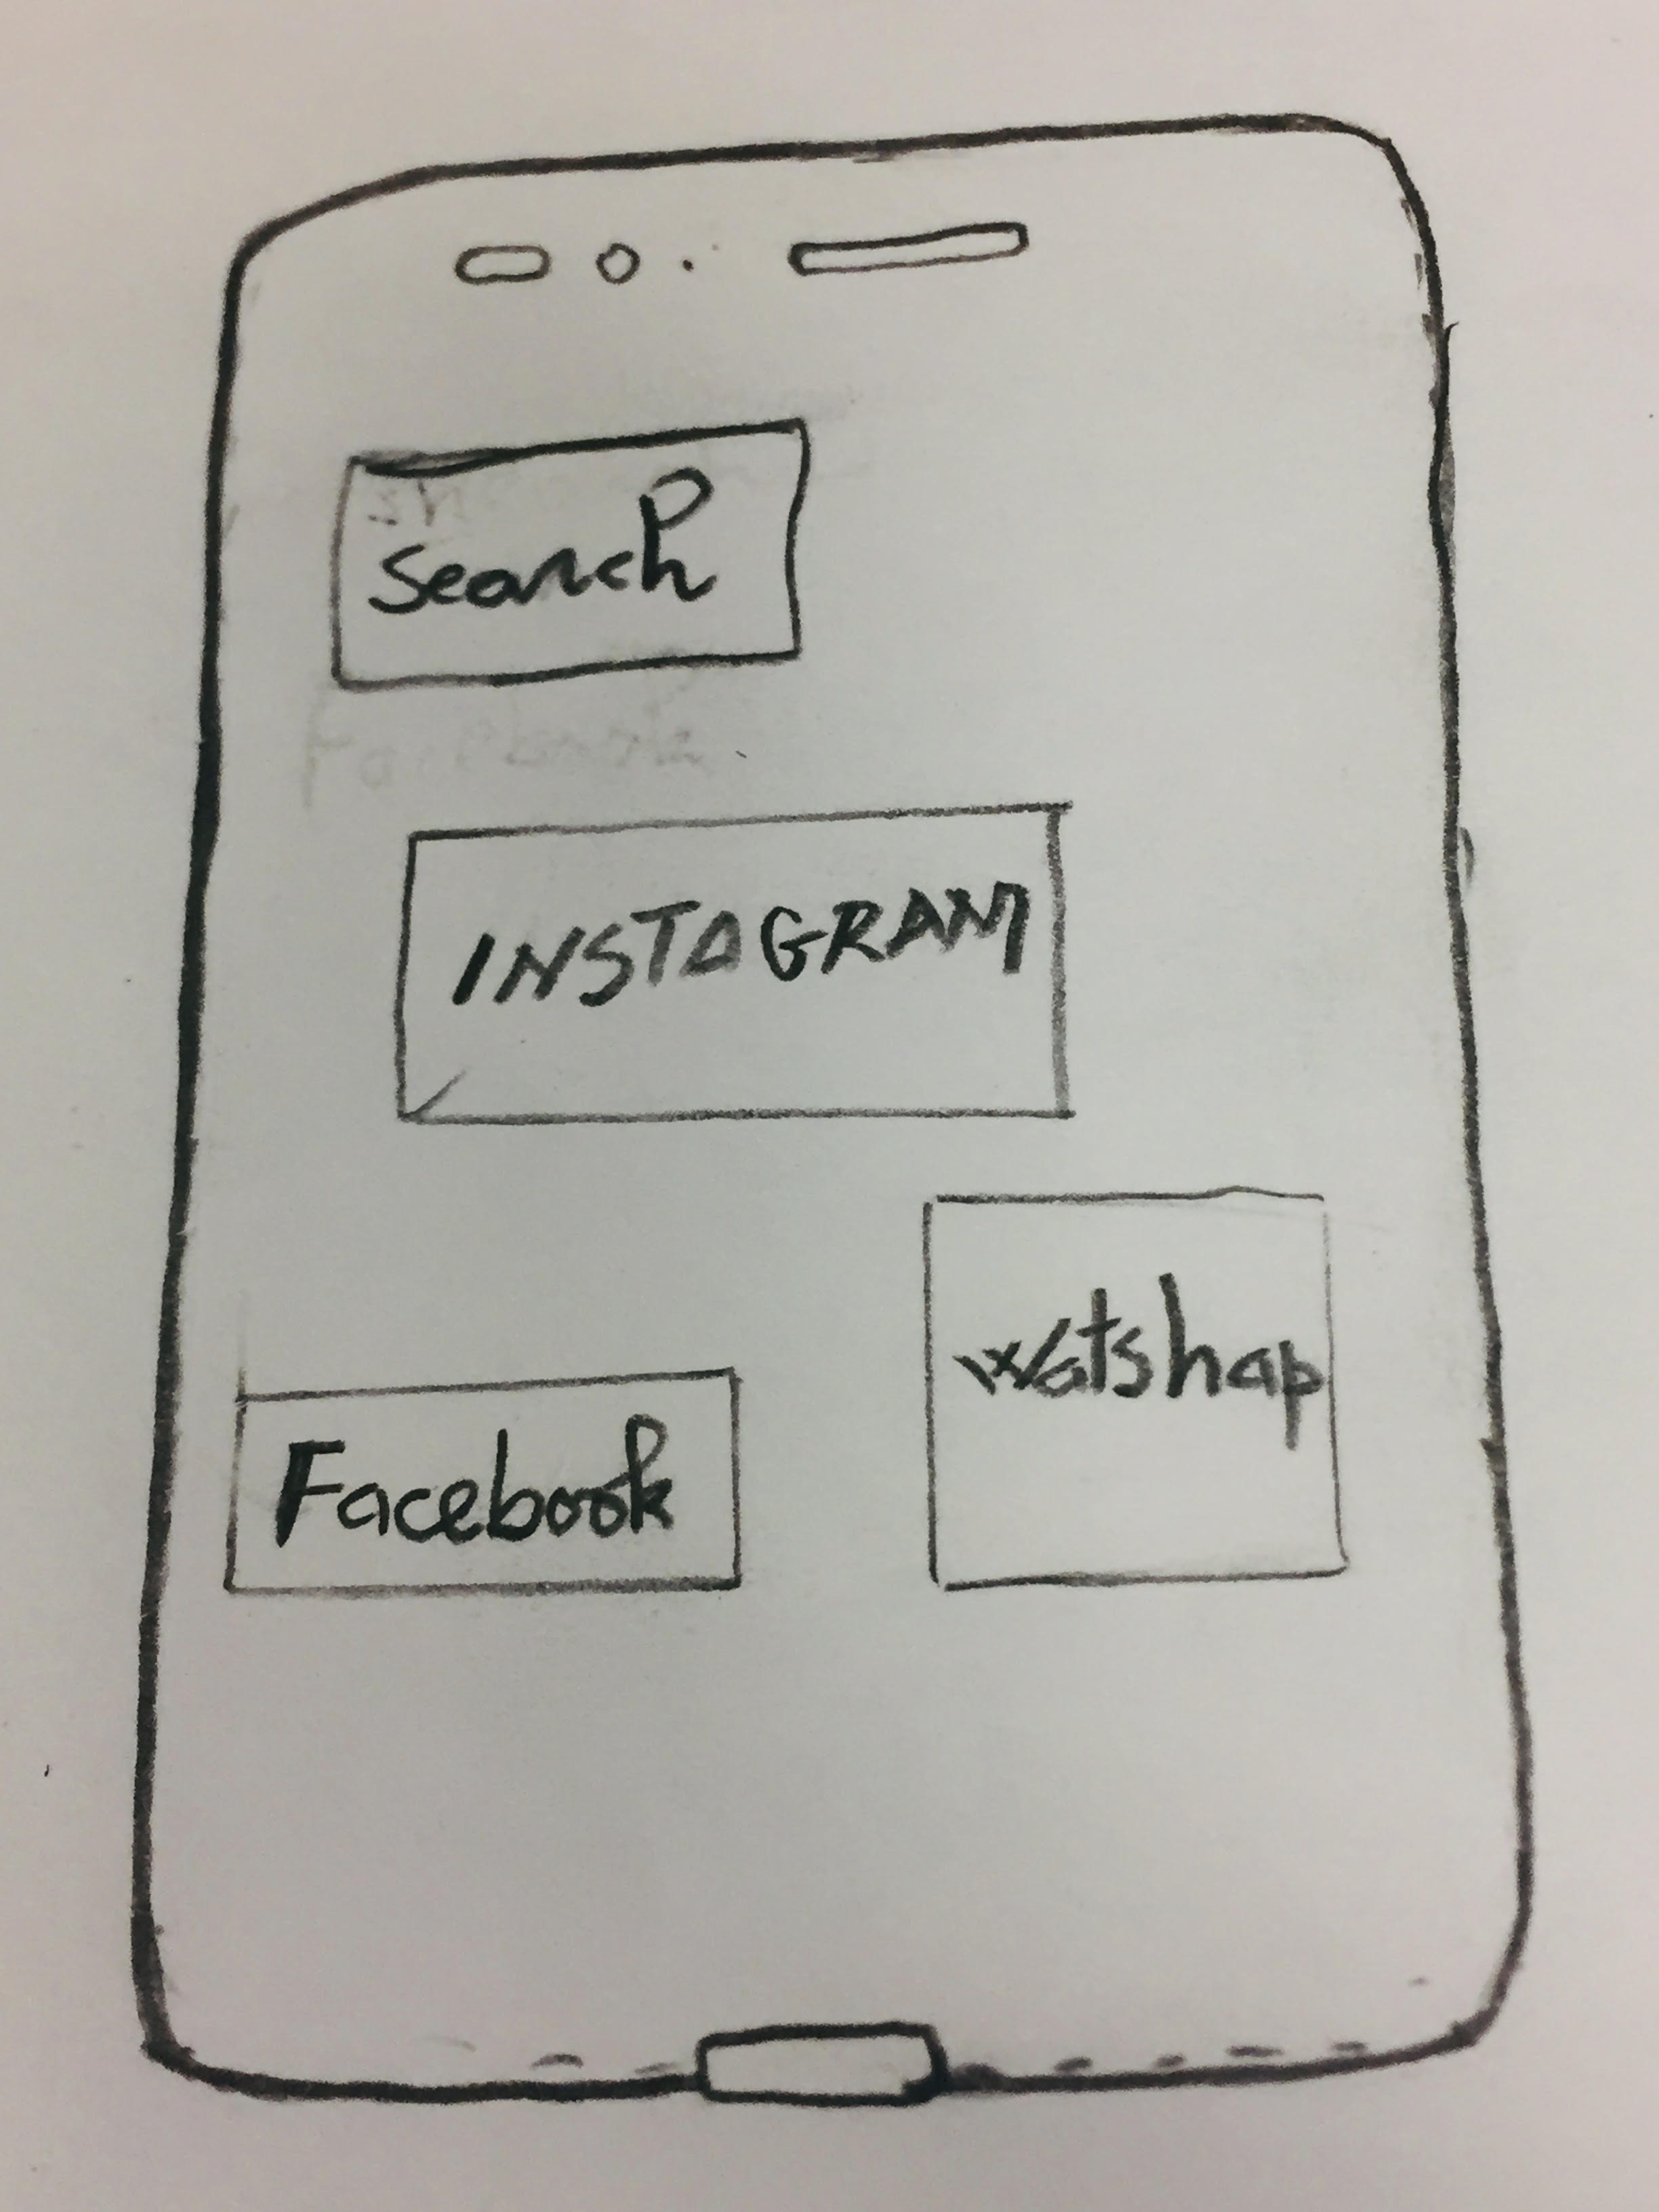 Search
INSTAGRAM
Watshap
Facebook